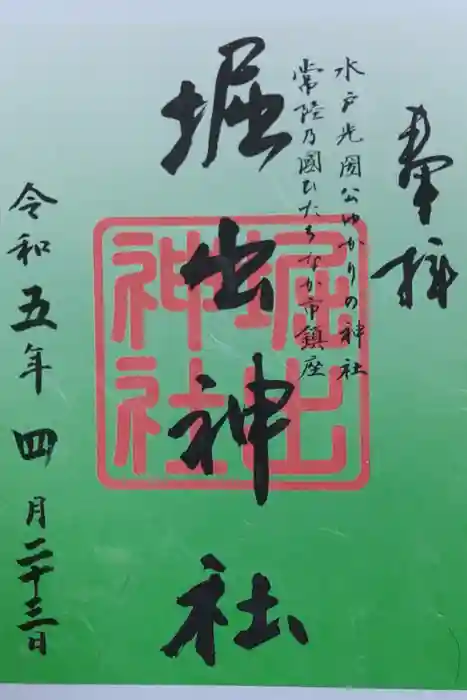 奉拝
水戸光圀公ゆかりの神社
常陸乃國ひたちなか市鎮座
堀出神社
堀出
神社
令和五年四月二十三日